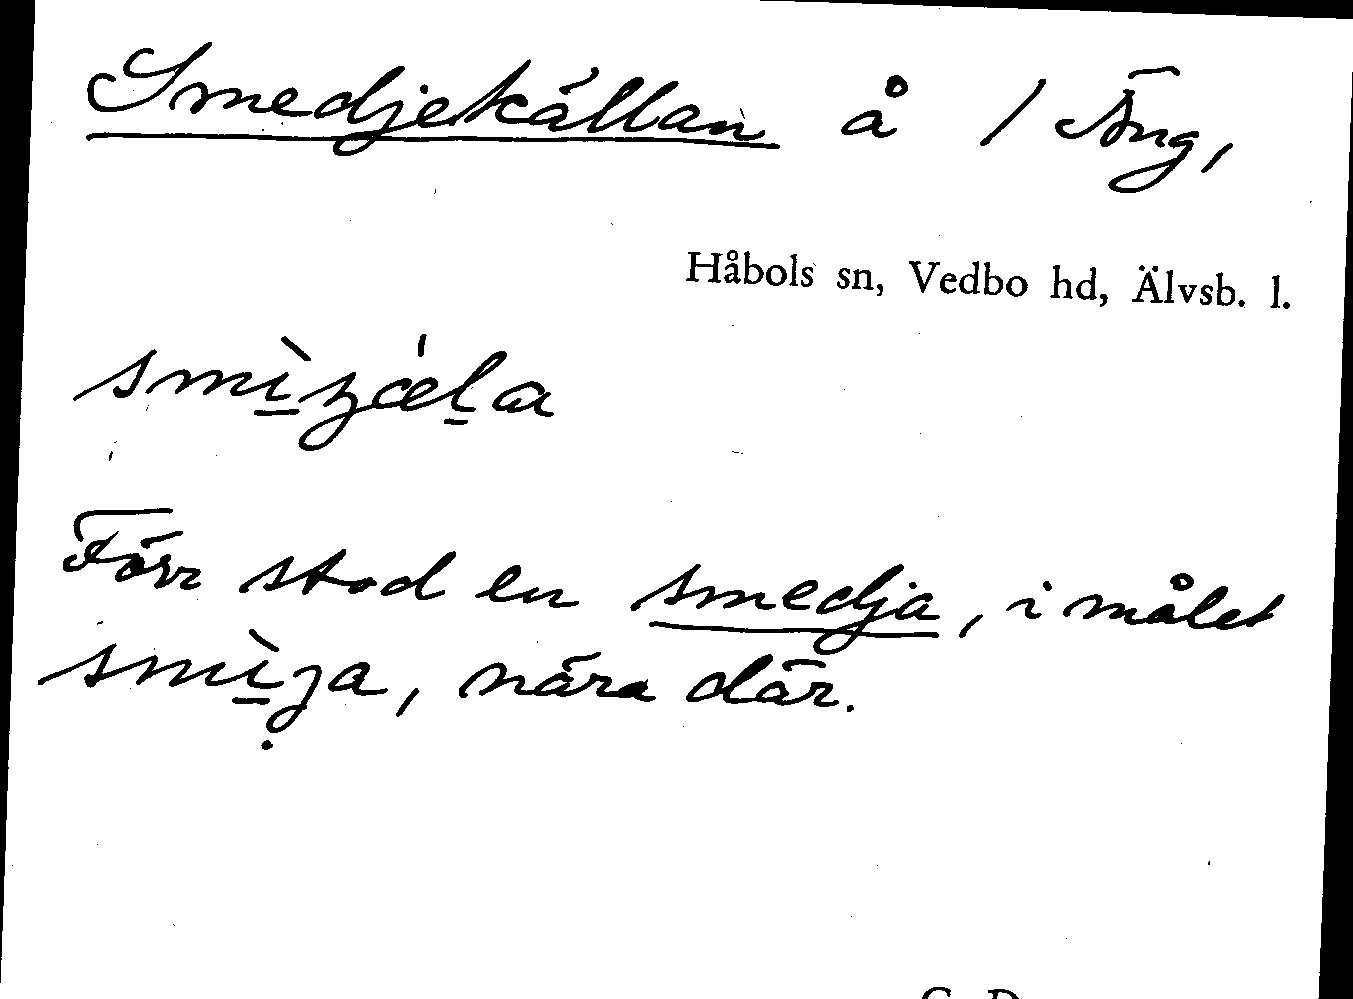 Smedjekällan å 1 Äng,
Håbols sn, Vedbo hd, Älvsb. l.
Förr stod en smedja, i målet
nära där.